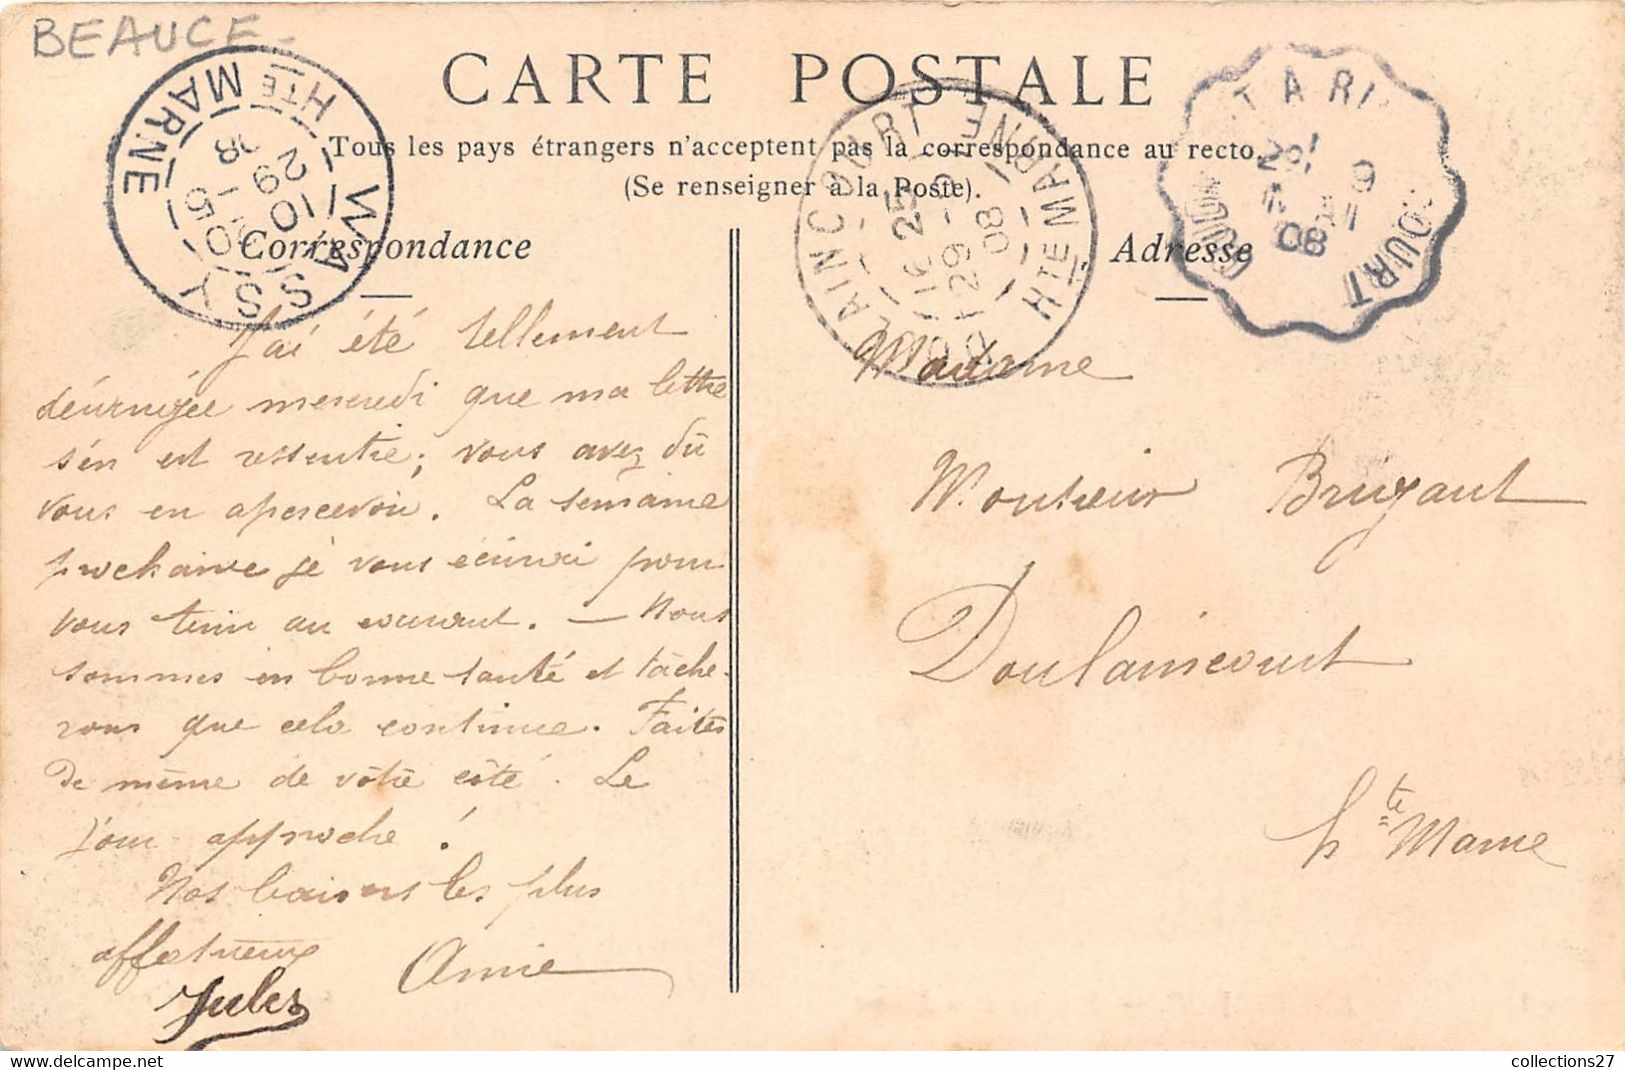 BEAUCE
CARTE POSTALE
Tous les pays étrangers n'acceptent pas la correspondance au recto.
(Se renseigner à la Poste).
Correspondance
Adresse
WASSY
HTE MARNE
15
10
29
08
LAINCOURT
HTE MARNE
25
29
08
COURT
08
J'ai été tellement
mercredi que ma lettre
s'en est ressentie; vous avez dû
vous en apercevoir. La semaine
prochaine je vous écrirai pour
vous tenir au courant. — Nous
sommes en bonne santé et tâche-
rons que cela continue. Faites
de même de vôtre côté. Le
jour approche!
Nos baisers les plus
affectueux
Jules
Madame
Monsieur Brigaut
Doulaincourt
hte Marne
collections27